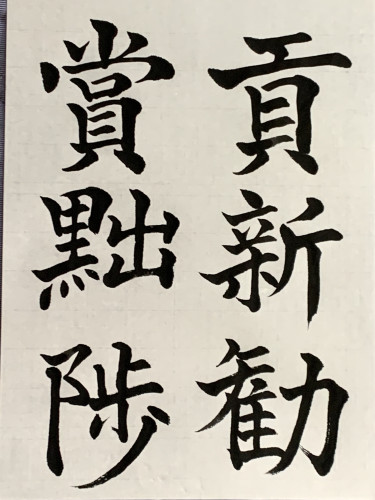 貢新勸
賞黜陟